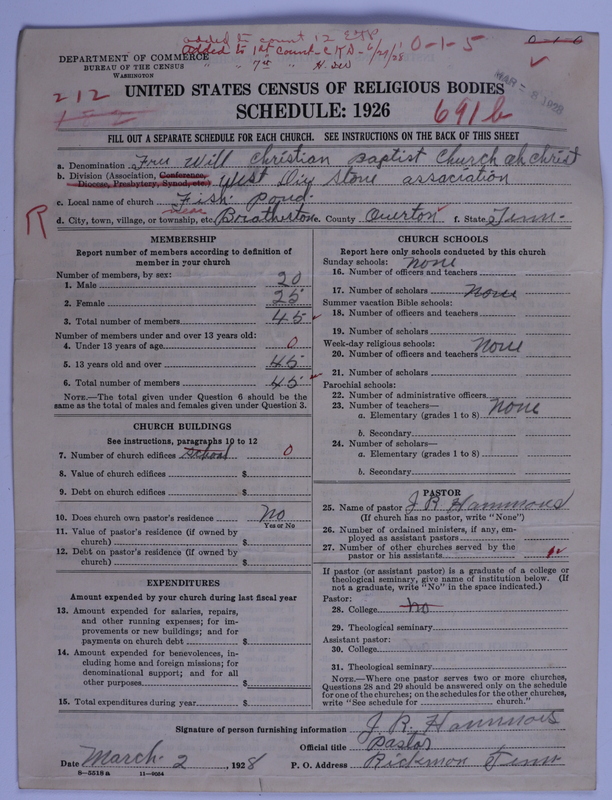 added to count 12 CKP
added to 1st Count - CKD - 6/29/28
" " 7th " H. Sev
0-1-5
0-1-0
DEPARTMENT OF COMMERCE
BUREAU OF THE CENSUS
WASHINGTON
212
182
MAR - 8 1928
UNITED STATES CENSUS OF RELIGIOUS BODIES
SCHEDULE: 1926
691b
FILL OUT A SEPARATE SCHEDULE FOR EACH CHURCH. SEE INSTRUCTIONS ON THE BACK OF THIS SHEET
a. Denomination Free Will Christian Baptist Church of christ
b. Division (Association, Conference, Diocese, Presbytery, Synod, etc.) West Div Stone association
c. Local name of church Fish Pond
R
d. City, town, village, or township, etc. near e. County Overton f. State Tenn.
MEMBERSHIP
Report number of members according to definition of
member in your church
Number of members, by sex:
1. Male 20
2. Female 25
3. Total number of members 45
Number of members under and over 13 years old:
4. Under 13 years of age 0
5. 13 years old and over 45
6. Total number of members 45
NOTE.—The total given under Question 6 should be
same as the total of males and females given under Question 3.
CHURCH BUILDINGS
See instructions, paragraphs 10 to 12
7. Number of church edifices School 0
8. Value of church edifices $
9. Debt on church edifices $
10. Does church own pastor's residence No
Yes or No
11. Value of pastor's residence (if owned by
church) $
12. Debt on pastor's residence (if owned by
church) $
EXPENDITURES
Amount expended by your church during last fiscal year
13. Amount expended for salaries, repairs,
and other running expenses; for im-
provements or new buildings; and for
payments on church debt $
14. Amount expended for benevolences, in-
cluding home and foreign missions; for
denominational support; and for all
other purposes $
15. Total expenditures during year $
CHURCH SCHOOLS
Report here only schools conducted by this church
Sunday schools: none
16. Number of officers and teachers
17. Number of scholars none
Summer vacation Bible schools:
18. Number of officers and teachers
19. Number of scholars
Week-day religious schools: none
20. Number of officers and teachers
21. Number of scholars
Parochial schools:
22. Number of administrative officers
23. Number of teachers—
a. Elementary (grades 1 to 8) none
b. Secondary
24. Number of scholars—
a. Elementary (grades 1 to 8)
b. Secondary
PASTOR
25. Name of pastor J R Hammons
(If church has no pastor, write "None")
26. Number of ordained ministers, if any, em-
ployed as assistant pastors
27. Number of other churches served by the
pastor or his assistants
If pastor (or assistant pastor) is a graduate of a college or
theological seminary, give name of institution below. (If
not a graduate, write "No" in the space indicated.)
Pastor:
28. College no
29. Theological seminary
Assistant pastor:
30. College
31. Theological seminary
NOTE.—Where one pastor serves two or more churches,
Questions 28 and 29 should be answered only on the schedule
for one of the churches; on the schedules for the other churches,
write "See schedule for church."
Signature of person furnishing information J. R. Hammons
Official title Pastor
Date March 2, 1928 P. O. Address Rickmon Tenn
8-5518a 11-9024